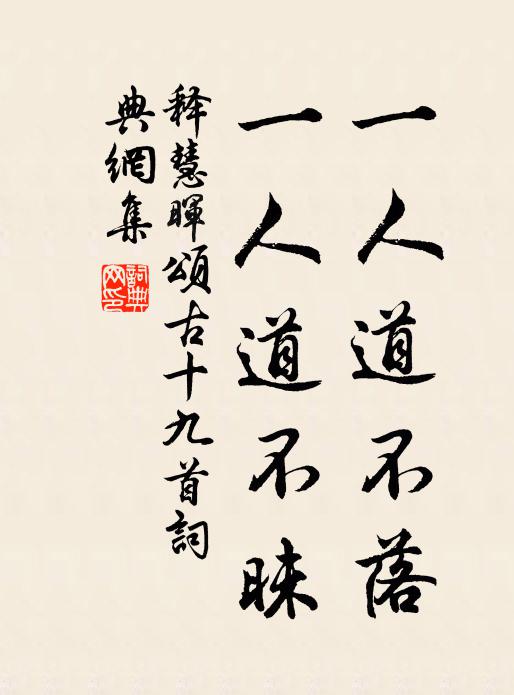 一人道不落
一人道不昧
释慧暉頌古十九首詞
典網集
詞典网印